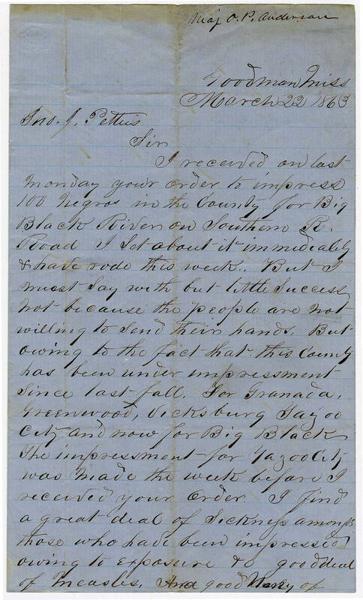 Maj O. P. Anderson
Goodman Miss
March 22 1863
Jno. J. Pettus
Sir
I received on last
Monday your order to impress
100 Negros in the County for Big
Black River on Southern R.
Road I Set about it immediately
& have rode this week. But I
must Say with but little Success
not because the people are not
willing to Send their hands. But
owing to the fact that this County
has been under impressment
Since last fall. For Granada,
Greenwood, Vicksburg Yazoo
City and now for Big Black
The impressment for Yazoo City
was made the week before I
received your Order I find
a great deal of Sickness among
those who have been impressed
owing to exposure & good deal
of Measles, And good Many of